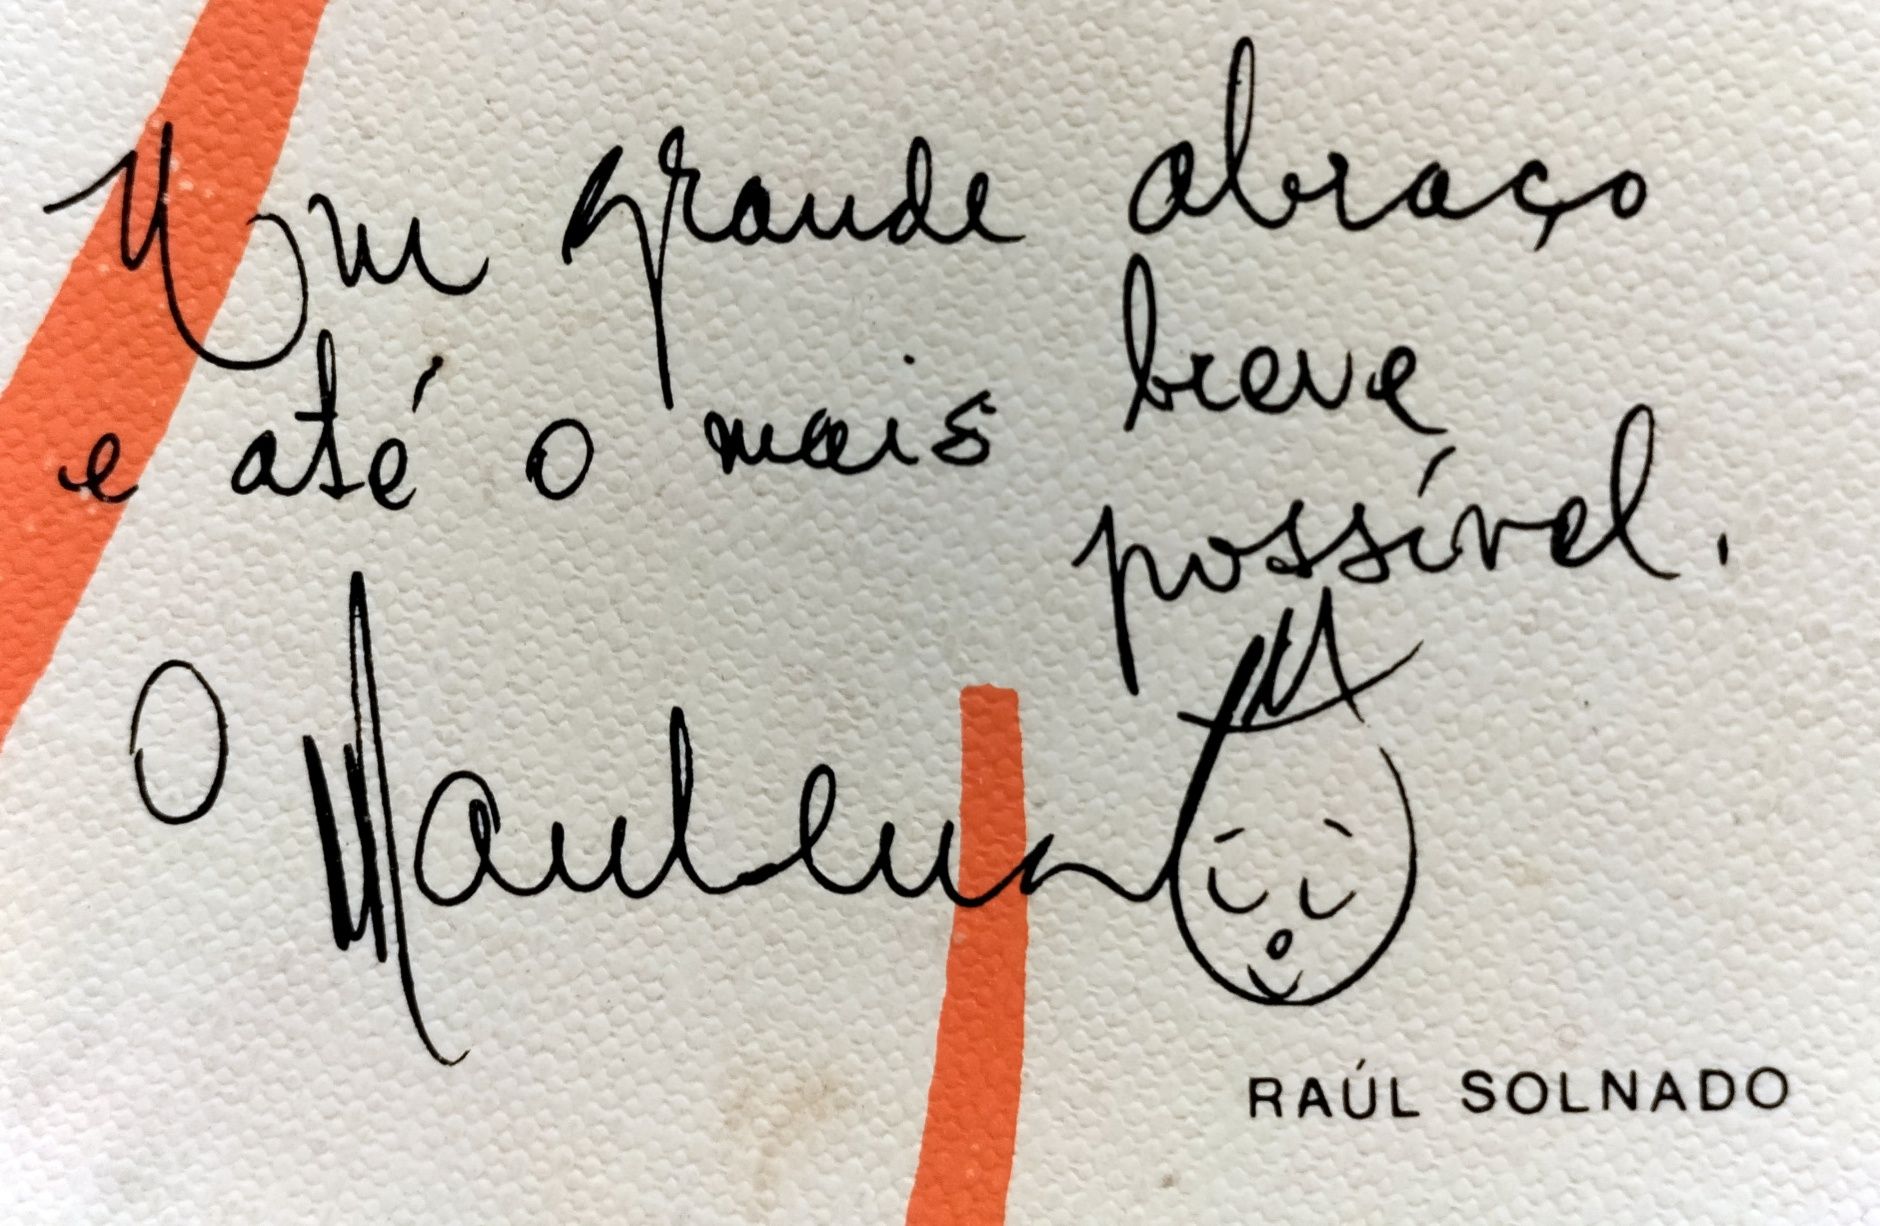 Um grande abraço
e até o mais breve
possível.
O
RAÚL SOLNADO